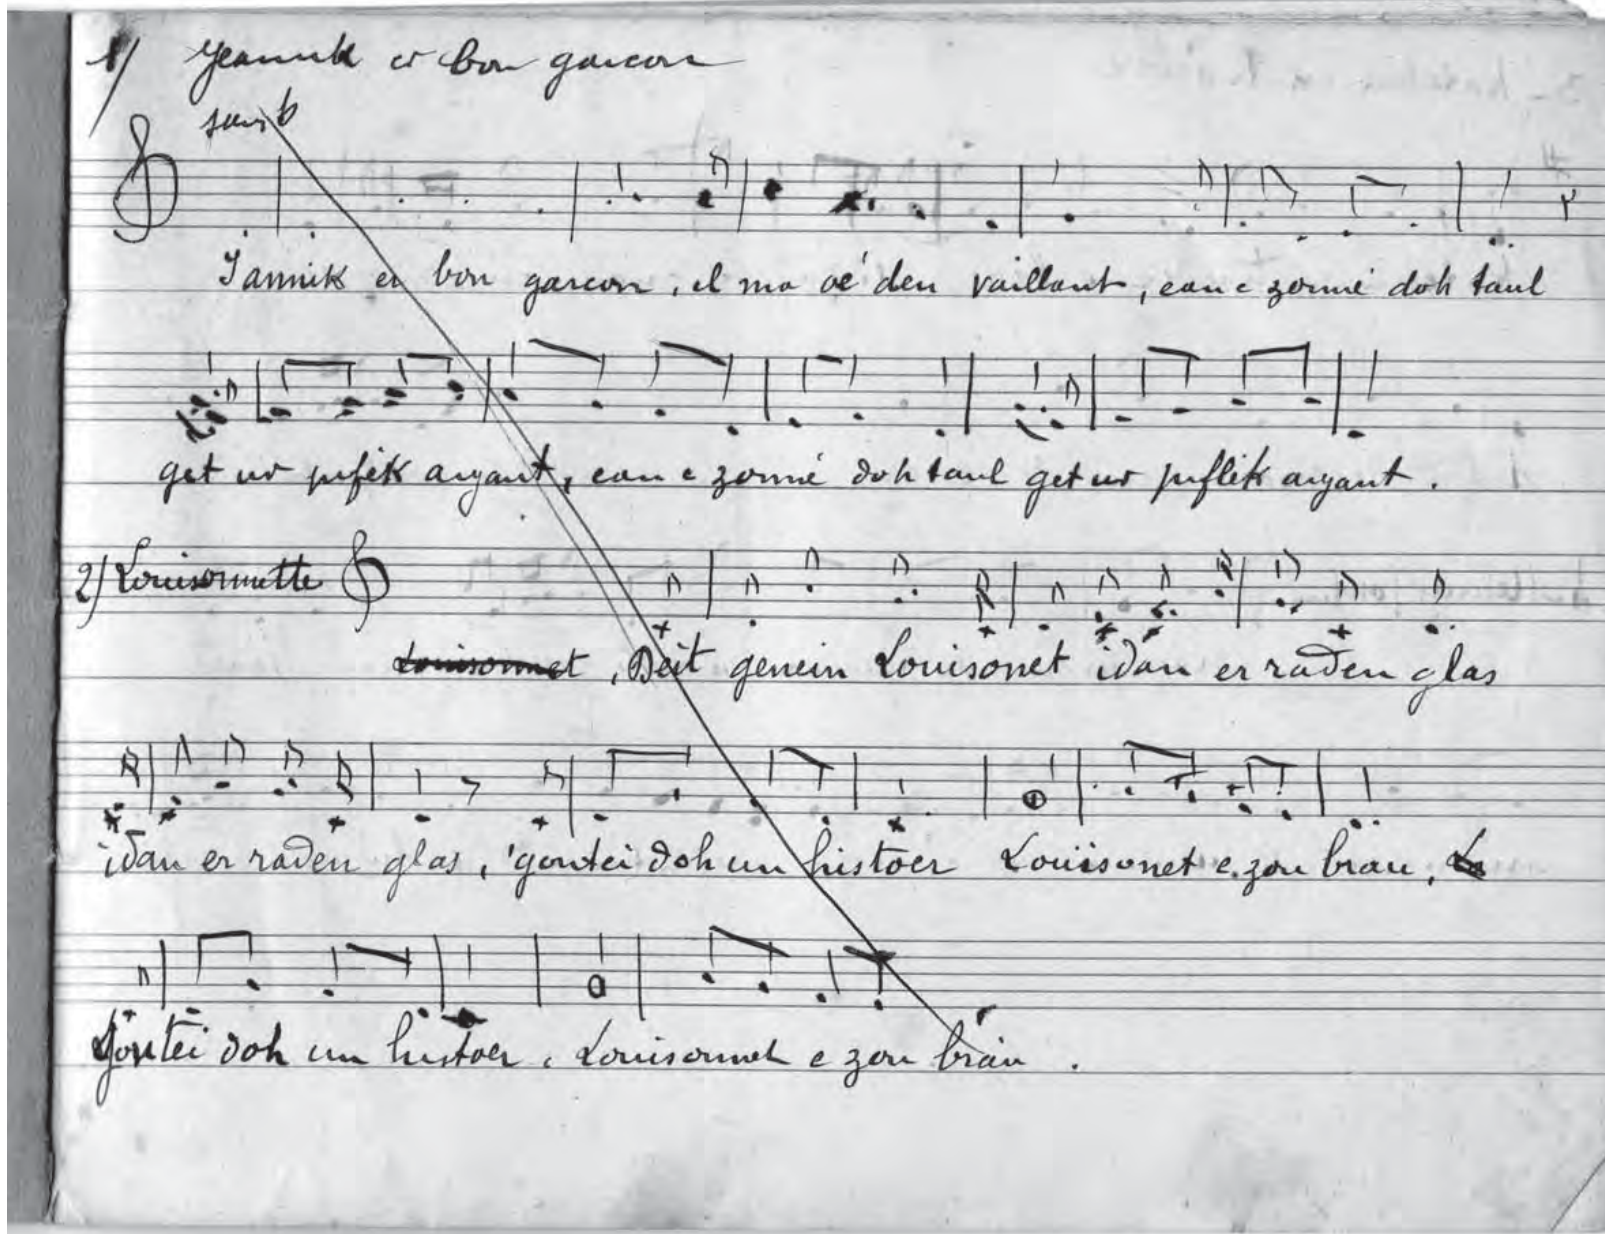 1/ Jeannik er bon garcon
sans b
Iannik er bon garcon, el ma oé den vaillant, ean e zonné doh taul
get ur pifék argant, ean e zonné doh taul get ur piflék argant.
2) Louisonnette
Louisonnet, Deit genein Louisonet idan er raden glas
idan er raden glas, 'gontei doh un histoer Louisonet e zou brau,
Gontei doh un histoer, Louisonnet e zou brau.